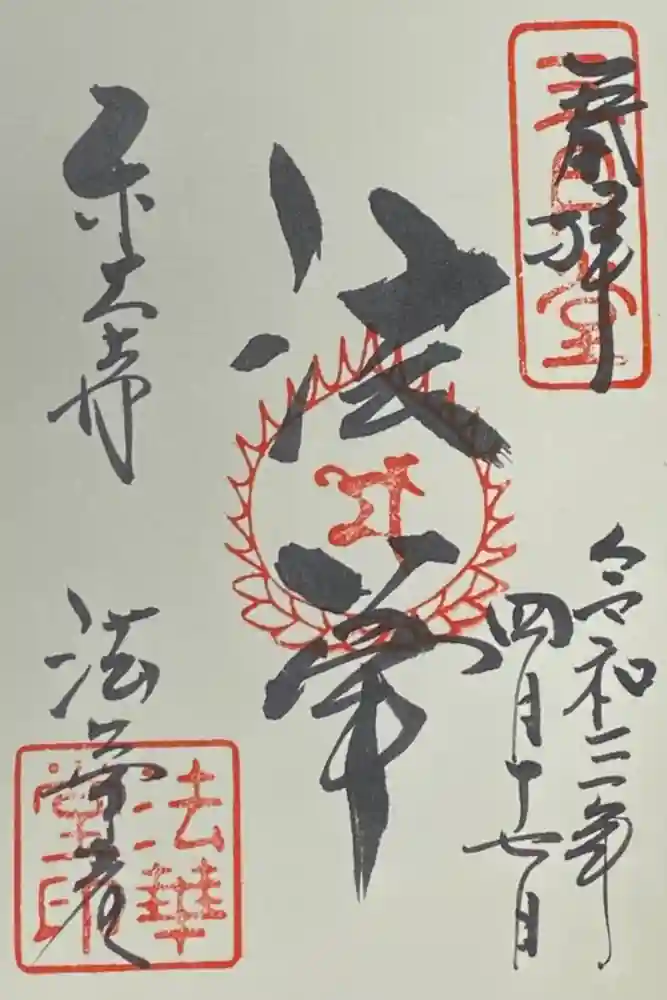 奉拝
三月堂
令和三年
四月十七日
法華
東大寺
法華堂
法華
堂印